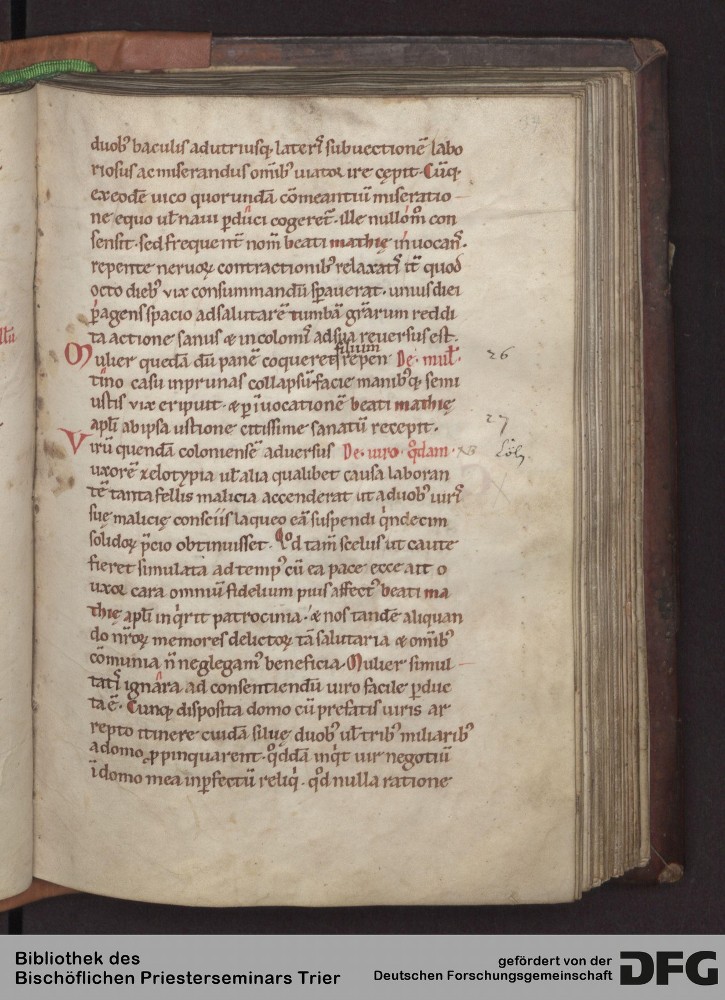 duob᷒ baculis ad utriusq; laterꝭ subuectionē labo
riosus ac miserandus om̄ib᷒ uiator ire cępit. Cūq;
ex eodē uico quorundā cōmeantiū miseratio
ne equo uł naui ꝑduci cogeret᷒. ille null om̄ con
sensit. sed frequent᷒ nom̄ beati mathię inuocan᷒.
repente neruoꝝ contractionib᷒ relaxat᷒ it᷒ quod
octo dieb᷒ vix consummandū sꝑauerat. unius diei
ꝑagens spacio ad salutarē tumbā grārum reddi
ta actione sanus & incolom᷒ ad sua reuersus est.
Mulier quedā dū panē coqueret filium repen De. muł.
tino casu in prunas collapsū. facie manib᷒q; semi
ustis vix eripuit. & ꝑ īuocationē beati mathię
apłi ab ipsa ustione citissime sanatū recepit.
Virū quendā coloniensē aduersus De. uiro. q̊dam.
uxorē zelotypia uł alia qualibet causa laboran
tē tanta fellis malicia accenderat ut a duob᷒ uirꝭ
suę malicię consciis laqueo eā suspendi q̇ndecim
solidoꝝ p̄cio obtinuisset. Qd̊ tam̄ scelus ut caute
fieret simulata ad temp᷒ cū ea pace ecce ait o
uxor cara omniū fidelium pius affect᷒ beati ma
thię apłi inq̇rit patrocinia. & nos tandē aliquan
do nr̄oꝝ memores delictoꝝ tā salutaria & om̄ib᷒
cōmunia n̄ neglegam᷒ beneficia. Mulier simul
tatꝭ ignara ad consentiendū uiro facile ꝑduc
ta ē. Cunq; disposita domo cū prefatis uiris ar
repto itinere cuidā siluę duob᷒ uł trib᷒ miliarib᷒
a domo ꝓpinquarent. q̊ddā inq̇t uir negotiū
ī domo mea inꝑfectū reliq̇. q̊d nulla ratione
26
27
NB Cöln.
Bibliothek des
Bischöflichen Priesterseminars Trier
gefördert von der
Deutschen Forschungsgemeinschaft
DFG